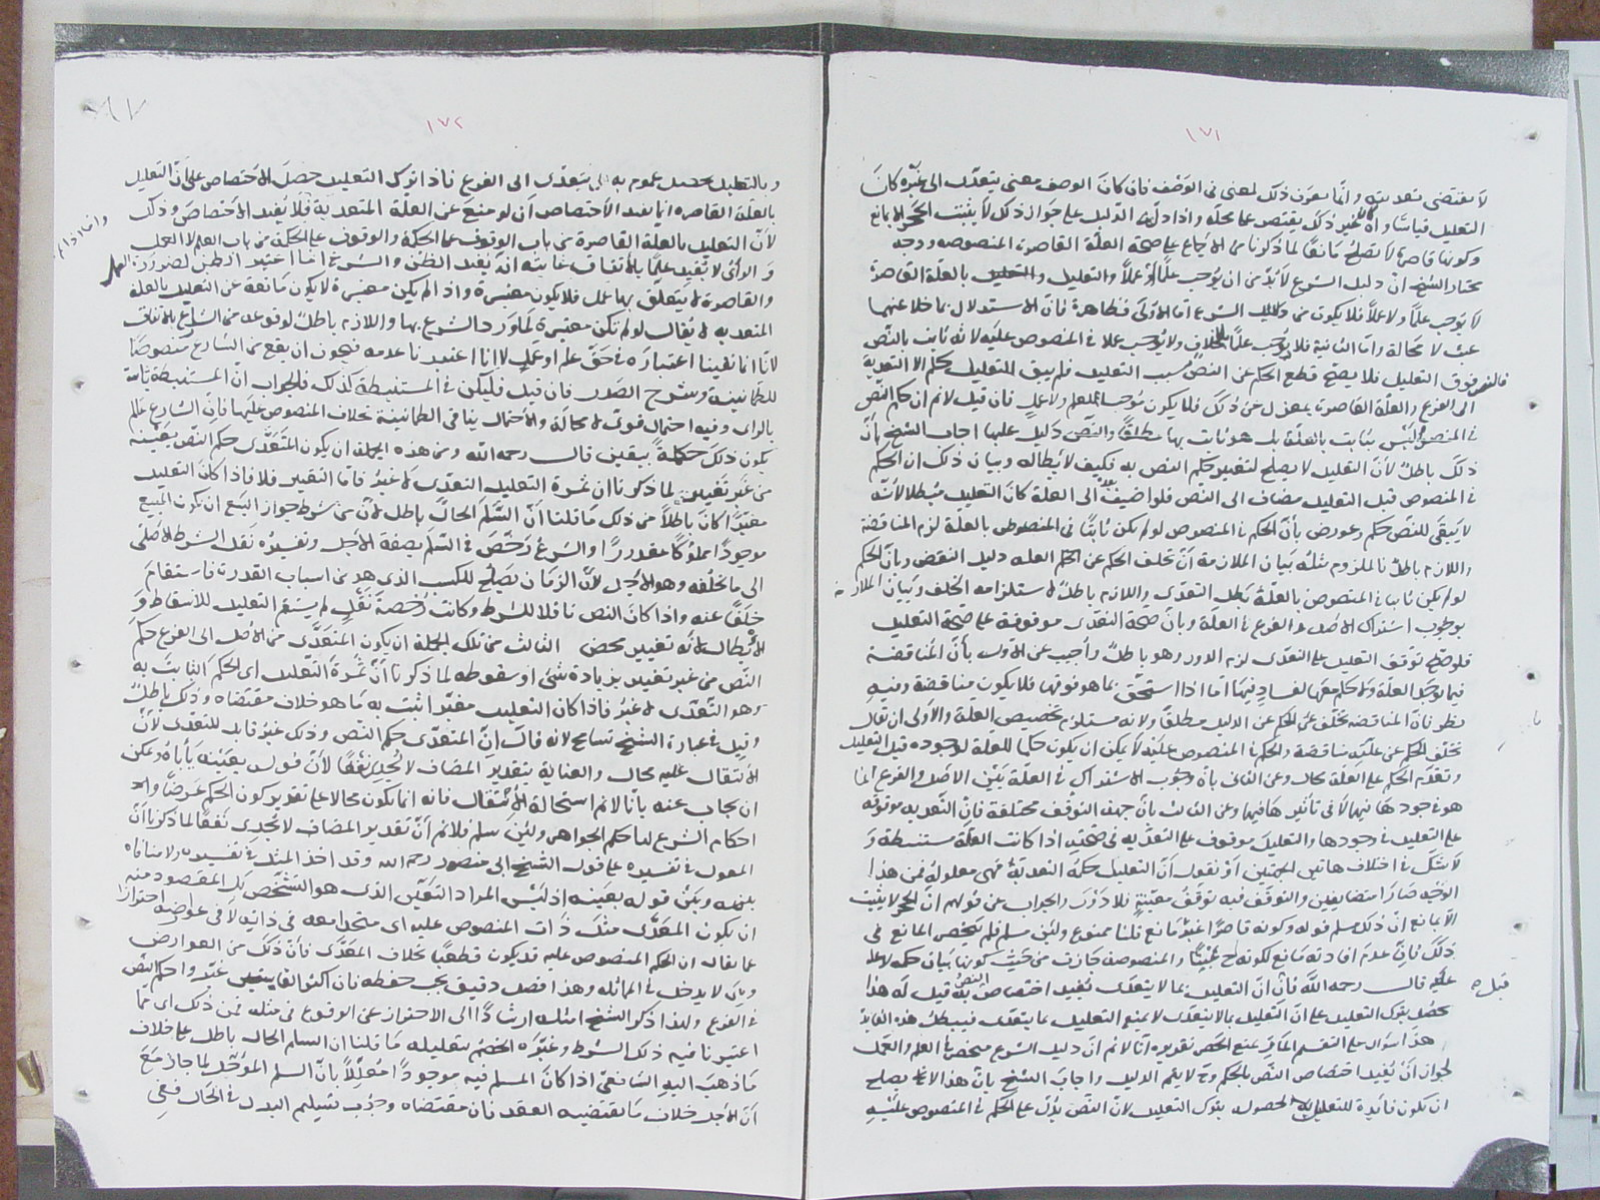 ١٧١
لا يقتضى تعديته وانما يعرف ذلك لمعنى فى الوصف فان كان الوصف معنى يتعدى الى غيره كان
التعليل قياسا وان غير ذلك يقتصر على محله واذا دل الدليل على جواز ذلك لا يثبت الحجر الا بمانع
وكونها قاصرة لا تصلح مانعا لما ذكرنا من الاجماع على صحة العلة القاصرة المنصوصة ووجه
مختار الشيخ ان دليل الشرع لا بد من ان يوجب علما او عملا والتعليل بالعلة القاصرة
لا يوجب علما ولا عملا فلا يكون من دلائل الشرع اما الاولى فظاهرة فان الاستدلال بما خلا عنهما
عبث لا محالة واما الثانية فلا يوجب علما بلا خلاف ولا يوجب عملا فى المنصوص عليه لانه ثابت بالنص
فالنص فوق التعليل فلا يصح قطع الحكم عن النص بسبب التعليل فلم يبق للتعليل حكم الا التعدية
الى الفرع والعلة القاصرة بمعزل عن ذلك فلا يكون موجبا للعلم ولا عمل فان قيل لا نم ان حكم النص
فى المنصوص ليس بثابت بالعلة بل هو ثابت بها مطلقا والنص دليل عليها اجاب الشيخ بان
ذلك باطل لان التعليل لا يصلح لتغيير حكم النص به فكيف لابطاله وبيان ذلك ان الحكم
فى المنصوص قبل التعليل مضاف الى النص فلو اضيف الى العلة كان التعليل مبطلا لانه
لا يبقى للنص حكم وعورض بان الحكم فى المنصوص لو لم يكن ثابتا فى المنصوص بالعلة لزم المناقضة
واللازم باطل فالملزوم مثله بيان الملازمة ان تخلف الحكم عن العلة دليل النقض وبان الحكم
لو لم يكن ثابتا فى المنصوص بالعلة بطل التعدى واللازم باطل لاستلزامه الخلف وبيان الملازمة
بوجوب اشتراك الاصل والفرع فى العلة وبان صحة التعدى موقوفة على صحة التعليل
فلو توقف التعليل على التعدى لزم الدور وهو باطل واجيب عن الاول بان المناقضة
فيما يوجد العلة ولا حكم معها لفساد فيها اما اذا استحق بما هو فوقها فلا يكون مناقضة وفيه
نظر فان المناقضة تخلف الحكم عن الدليل مطلقا ولانه مستلزم تخصيص العلة والاولى ان يقال
تخلف الحكم عن علته مناقضة والحكم فى المنصوص عليه لا يمكن ان يكون حكما للعلة لوجوده قبل التعليل
وتقدم الحكم على العلة محال وعن الثانى بان وجوب الاشتراك فى العلة بين الاصل والفرع انما
هو فى وجودها فيهما لا فى تاثيرها فيهما وعن الثالث بان جهة التوقف مختلفة فان التعدية موقوفة
على التعليل فى وجودها والتعليل موقوف على التعدية فى صحته اذا كانت العلة مستنبطة و
لا شك فى اختلاف هاتين الجهتين او نقول ان التعليل حكمه التعدية فهى معلولة فمن هذا
الوجه صارا متضايفين والتوقف فيه توقف معية فلا دور والجواب عن قولهم ان الحجر لا يثبت
الا بمانع ان ذلك مسلم قوله وكونه قاصرا غير مانع قلنا ممنوع ولئن سلم فلم ينحصر المانع فى
ذلك فان عدم افادته مانع لكونه ح عبثا والمنصوصة جازت من حيث كونها بيان حكمة لا علة
قبله قال رحمه الله فان قال ان التعليل بما لا يتعدى تفيد اختصاص النص به قيل له هذا
يحصل بترك التعليل على ان التعليل بما لا يتعدى لا يمنع التعليل بما يتعدى فيبطل هذه الفائدة
هذا سؤال على التقسيم الحاصر بمنع الحصر تقريره انا لا نم ان دليل الشرع منحصر فى العلم والعمل
لجواز ان يفيد اختصاص النص بالحكم وح لا يتم الدليل واجاب الشيخ بان هذا لا يصلح
ان يكون فائدة للتعليل لحصوله بترك التعليل لان النص يدل على الحكم فى المنصوص عليه
١٧٢
وبالتعليل يحصل عموم به يتعدى الى الفرع فاذا ترك التعليل حصل الاختصاص على ان التعليل
بالعلة القاصرة انما يفيد الاختصاص ان لو منع عن العلة المتعدية فلا يفيد الاختصاص وذلك
لان التعليل بالعلة القاصرة من باب الوقوف على الحكمة والوقوف على الحكمة من باب العلم لا العمل
و الراى لا يفيد علما بالاتفاق غايته انه يفيد الظن والشرع انما اعتبر الظن لضرورة العمل
والقاصرة لا يتعلق بها عمل فلا يكون معتبرة واذا لم يكن معتبرة لا يكون مانعة عن التعليل بالعلة
المتعدية لا يقال لو لم تكن معتبرة لما ورد الشرع بها واللازم باطل لوقوعه من الشارع بالاتفاق
لانا انما نفينا اعتباره فى حق علم او عمل لا انا اعتبرنا عدمه فيجوز ان يقع من الشارع منصوصا
للطمانينة وشرح الصدر فان قيل فليكن فى المستنبطة كذلك فالجواب ان المستنبطة ثابتة
بالراى وفيه احتمال قوى لا محالة والاحتمال ينافى الطمانينة بخلاف المنصوص عليها فان الشارع عالم
بكون ذلك حكمة بيقين قال رحمه الله ومن هذه الجملة ان يكون المتعدى حكم النص بعينه
من غير تغيير لما ذكرنا ان ثمرة التعليل التعدى لا غير فاما التغيير فلا فاذا كان التعليل
مغيرا كان باطلا من ذلك ما قلنا ان السلم الحال باطل لان من شرط جواز البيع ان يكون المبيع
موجودا مملوكا مقدورا والشرع رخص فى السلم بصفة الاجل وتفسيره نقل الشرط الاصلى
الى ما يخلفه وهو الاجل لان الزمان يصلح للكسب الذى هو من اسباب القدرة فاستقام
خلفا عنه واذا كان النص ناقلا للشرط وكانت رخصة نقل لم يستقم التعليل للاسقاط و
الابطال لانه تغيير محض الثالث من تلك الجملة ان يكون المتعدى من الاصل الى الفرع حكم
النص من غير تغيير بزيادة شئ او سقوطه لما ذكرنا ان ثمرة التعليل اى الحكم الثابت به
وهو التعدى لا غير فاذا كان التعليل مغيرا ثبت به ما هو خلاف مقتضاه وذلك باطل
وقيل فى عبارة الشيخ تسامح لانه قال ان المتعدى حكم النص وذلك غير قابل للتعدى لان
الانتقال عليه محال والعناية بتقدير المضاف لا يجدى نفعا لان قوله بعينه ياباه ويمكن
ان يجاب عنه بانا لا نم استحالة الانتقال فانه انما يكون محالا على تقدير كون الحكم عرضا و
احكام الشرع لها حكم الجواهر ولئن سلم فلا نم ان تقدير المضاف لا يجدى نفعا لما ذكرنا ان
المعول فى تفسيره على قول الشيخ ابى منصور رحمه الله وقد اخذ المثل فى تفسيره ولا منافاة
بينه وبين قوله بعينه اذ ليس المراد التعين الذى هو التشخص بل المقصود منه
ان يكون المعدى مثل ذات المنصوص عليه اى متحدا معه فى ذاته لا فى عوارضه احترازا
عما يقال ان الحكم المنصوص عليه قد يكون قطعيا بخلاف المعدى فان ذلك من العوارض
لا يدخل فى المماثلة وهذا فصل دقيق يجب حفظه فان اكثر غيروا حكم النص
فى الفرع ولهذا ذكر الشيخ امثلة ارشادا الى الاحتراز عن الوقوع فى مثله فمن ذلك اى مما
اعتبرنا فيه ذلك الشرط وغيره الخصم بتعليله ما قلنا ان السلم الحال باطل على خلاف
ما ذهب اليه الشافعى اذا كان المسلم فيه موجودا معللا بان السلم المؤجل لما جاز مع
ان الاجل خلاف ما يقتضيه العقد فان مقتضاه وجوب تسليم البدل فى الحال ففى